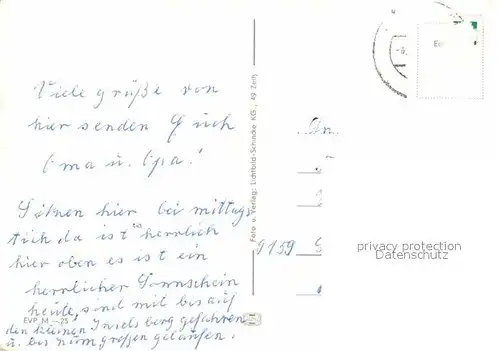 Viele grüße von
hier senden Euch
Oma u. Opa!
Sitzen hier bei mittags
tich da ist herrlich
hier oben es ist ein
herrlicher Sonnschein
heute sind mit bis auf
den kleinen Inselsberg gefahren
u. bis zum großen gelaufen.
EVP M -,25
Foto u. Verlag: Lichtbild-Schincke KG., 49 Zeitz
An
9159
privacy protection
Datenschutz